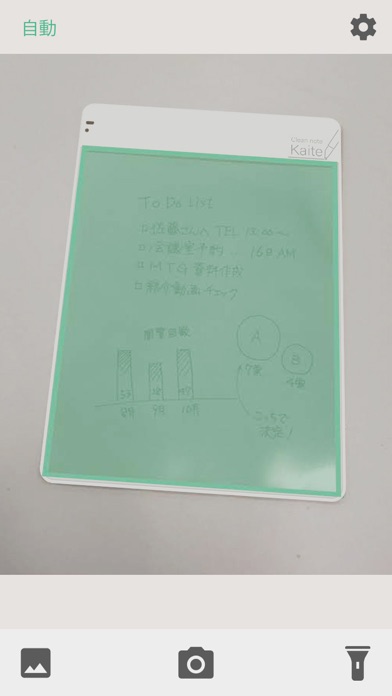 自動
Clean note
Kaite
To Do List
□佐藤さんへTEL 13:00〜
□会議室予約... 16日AM
□MTG資料作成
□紹介動画チェック
閲覧回数
A
B
8月 9月 10月
こっちで
決定!